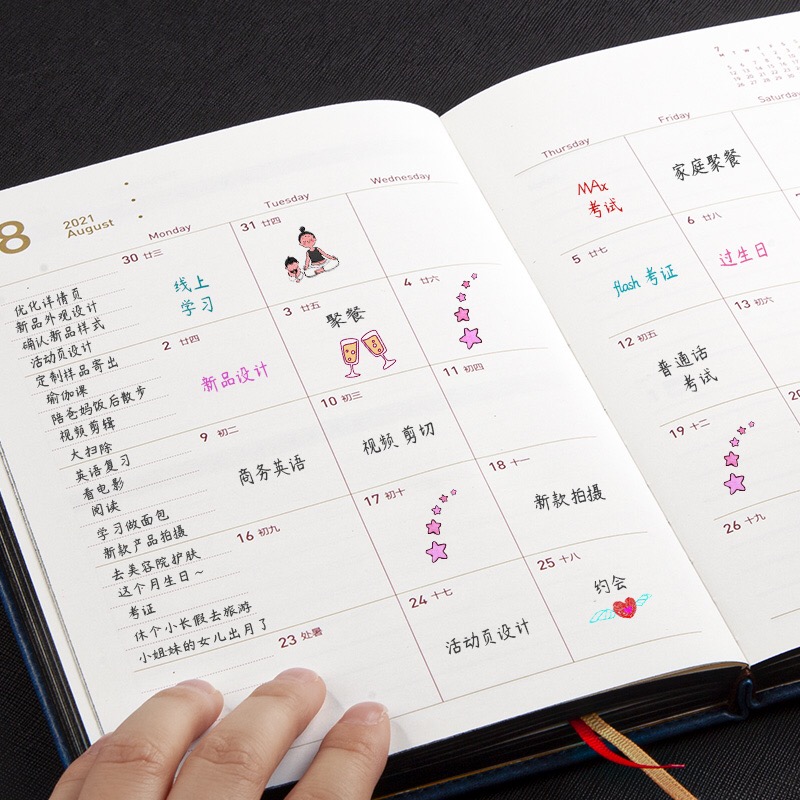 8
2021
August
优化详情页
新品外观设计
确认新品样式
活动页设计
定制样品寄出
瑜伽课
陪爸妈饭后散步
视频剪辑
大扫除
英语复习
看电影
阅读
学习做面包
新款产品拍摄
去美容院护肤
这个月生日~
考证
休个小长假去旅游
小姐妹的女儿出月了
Monday
Tuesday
Wednesday
30 廿三
线上
学习
31 廿四
2 廿四
新品设计
3 廿五
聚餐
4 廿六
9 初二
商务英语
10 初三
视频剪切
11 初四
16 初九
17 初十
18 十一
新款拍摄
23 处暑
24 十七
活动页设计
25 十八
约会
7
Thursday
Friday
Saturday
MAx
考试
家庭聚餐
5 廿七
flash 考证
6 廿八
过生日
12 初五
普通话
考试
13 初六
19 十二
26 十九